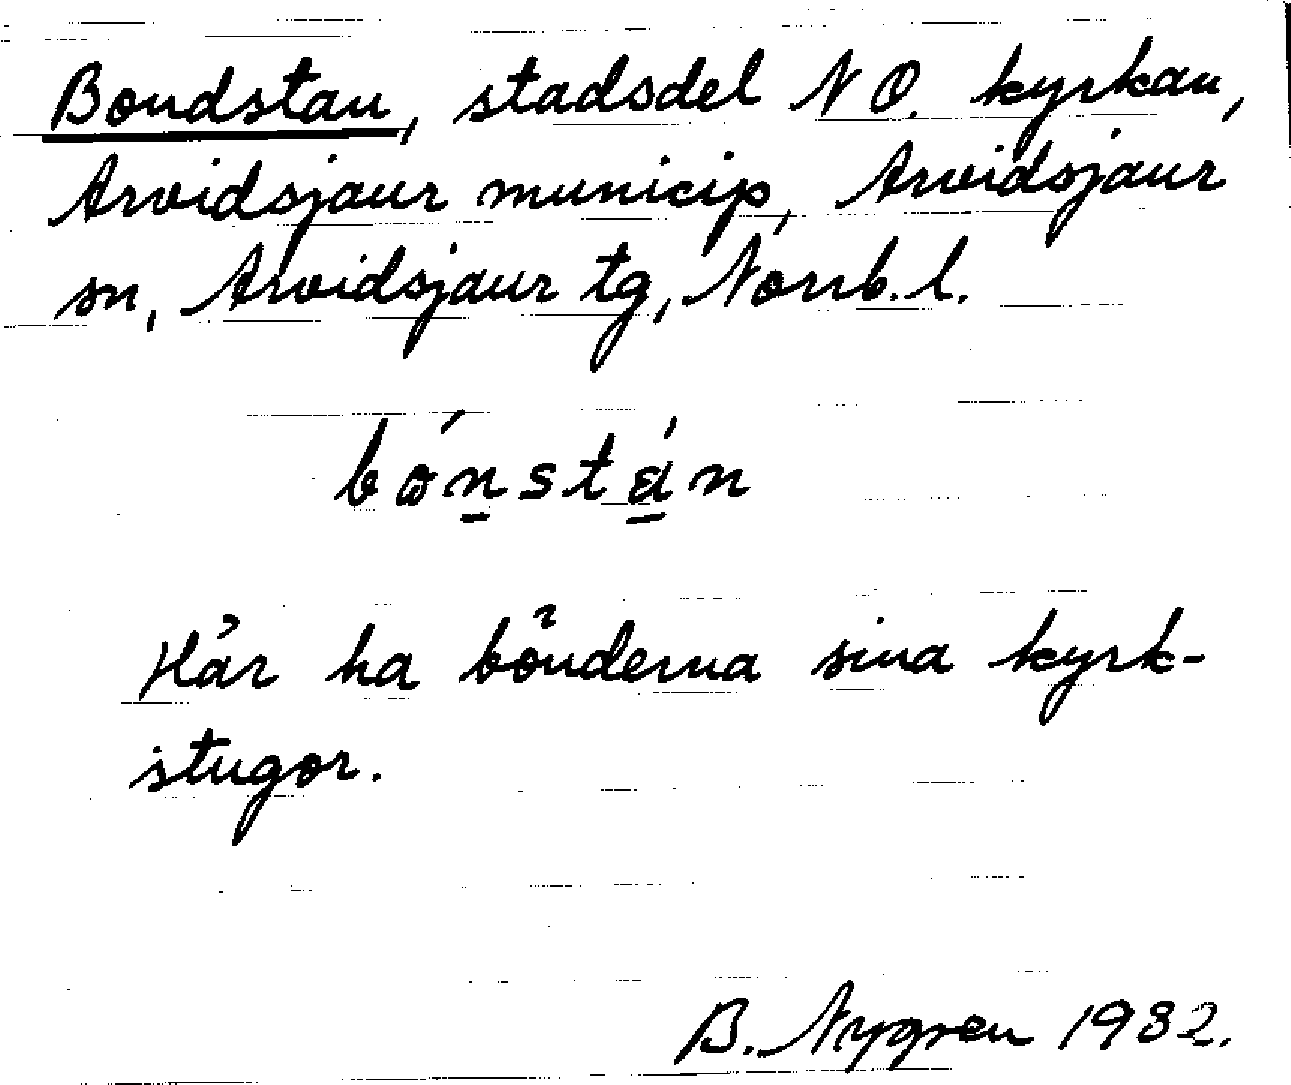 Bondstan, stadsdel N O. kyrkan,
Arvidsjaur municip, Arvidsjaur
sn, Arvidsjaur tg, Norrb. l.
bónstán
Här ha bönderna sina kyrk-
stugor.
B. Nygren 1932.